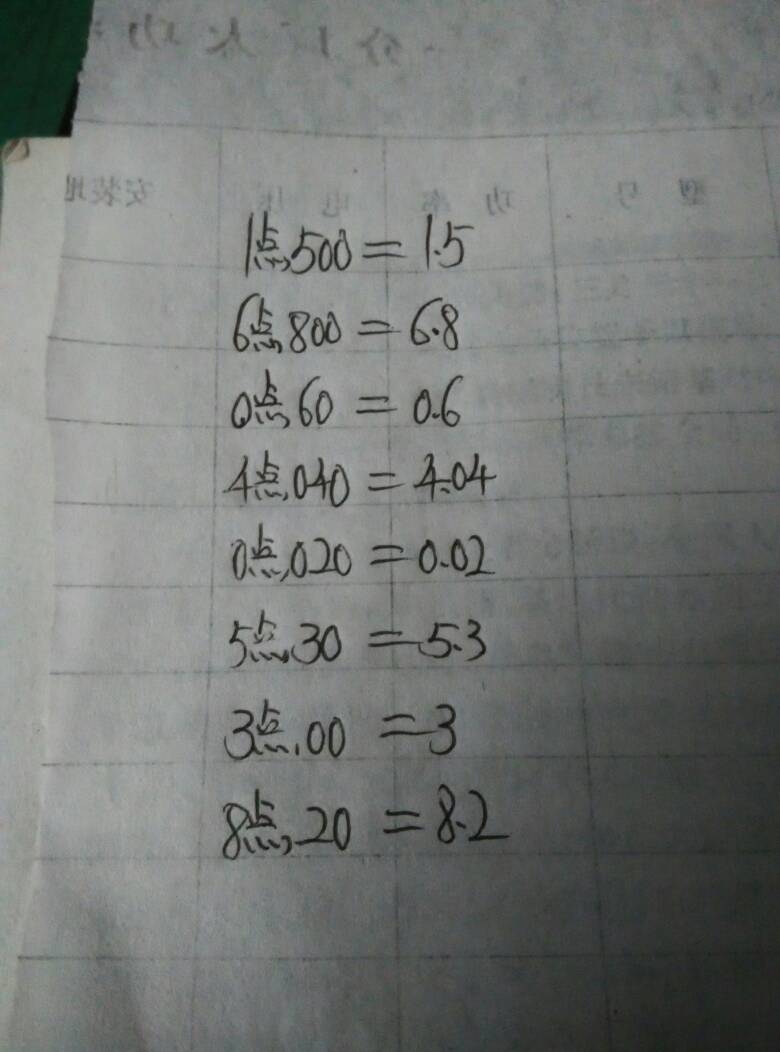 1点500=1.5
6点800=6.8
0点60=0.6
4点040=4.04
0点020=0.02
5点30=5.3
3点00=3
8点20=8.2